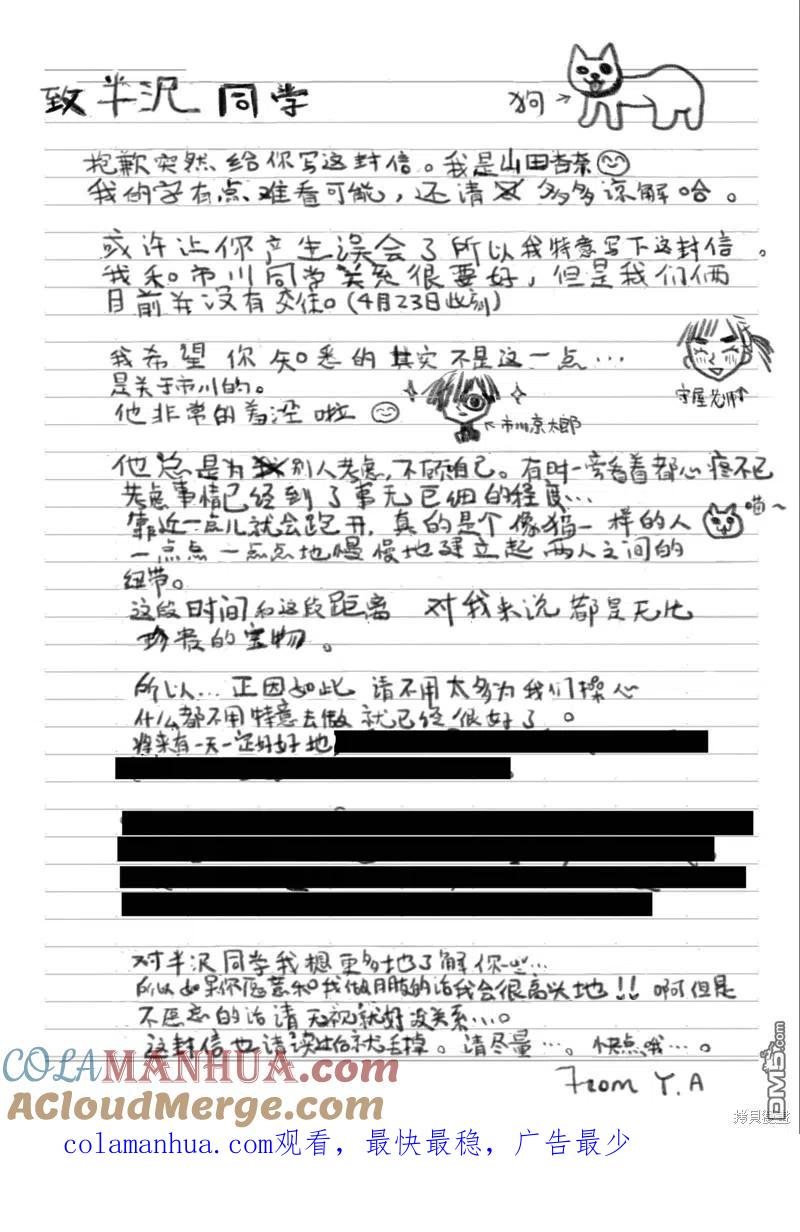 致半沢同学
狗→
抱歉突然给你写这封信。我是山田杏奈
我的字有点难看可能，还请多多谅解哈。
或许让你产生误会了所以我特意写下这封信。
我和市川同学关系很要好，但是我们俩
目前并没有交往。(4月23日此刻)
我希望你知悉的其实不是这一点…
是关于市川的。
守屋老师↑
他非常的羞涩啦
←市川京太郎
他总是为别人考虑，不顾自己。有时一旁看着都心疼不已
考虑事情已经到了事无巨细的程度…
靠近一点儿就会跑开，真的是个像猫一样的人
喵～
一点点一点点地慢慢地建立起两人之间的
纽带。
这段时间和这段距离 对我来说都是无比
珍贵的宝物。
所以…正因如此 请不用太多为我们操心
什么都不用特意去做 就已经很好了。
将来有一天一定好好地
对半沢同学我想更多地了解你一些…
所以如果你愿意和我做朋友的话我会很高兴地!! 啊但是
不愿意的话请无视就好没关系…。
这封信也请读完后就丢掉。请尽量…。快点哦…。
From Y.A
COLAMANHUA.COM
AcloudMerge.com
DM5.com
拷貝漫畫
colamanhua.com观看，最快最稳，广告最少